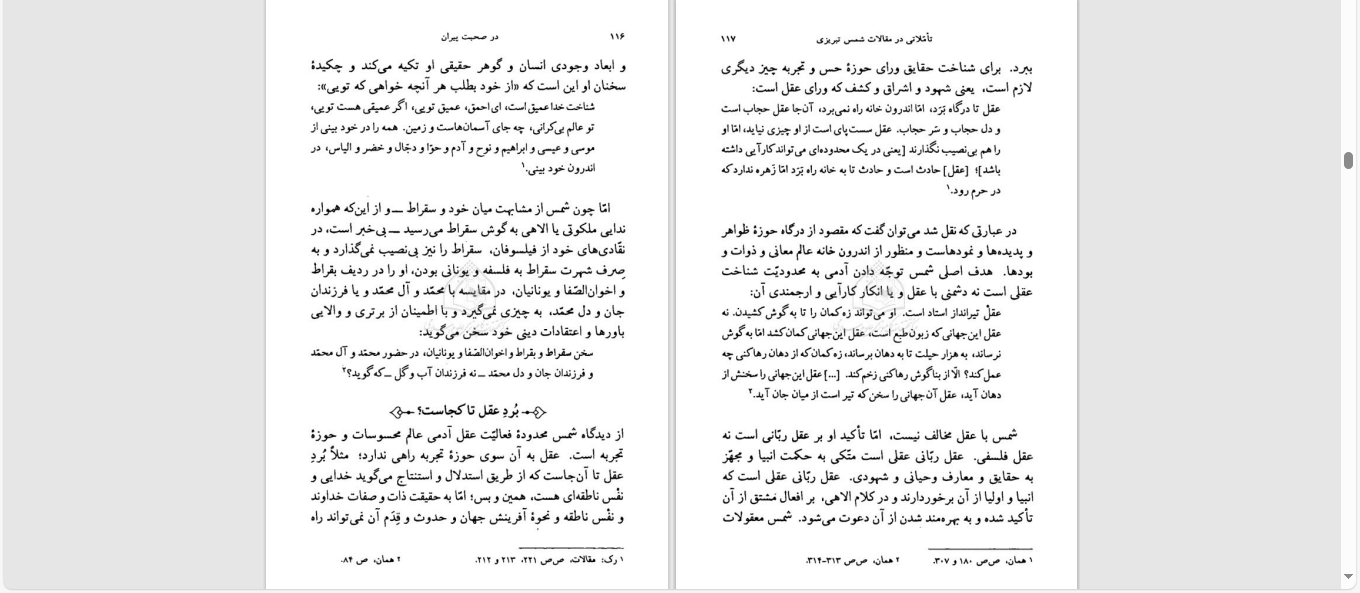 ۱۱۶
در صحبت پیران
و ابعاد وجودی انسان و گوهر حقیقی او تکیه می‌کند و چکیدهٔ
سخنان او این است که «از خود بطلب هر آنچه خواهی که تویی»:
شناخت خدا عمیق است، ای احمق، عمیق تویی، اگر عمیقی هست تویی،
تو عالم بی‌کرانی، چه جای آسمان‌هاست و زمین. همه را در خود بینی از
موسی و عیسی و ابراهیم و نوح و آدم و حوّا و دجّال و خضر و الیاس، در
اندرون خود بینی.۱
امّا چون شمس از مشابهت میان خود و سقراط ــ و از این‌که همواره
ندایی ملکوتی یا الاهی به گوش سقراط می‌رسید ــ بی‌خبر است، در
نقّادی‌های خود از فیلسوفان، سقراط را نیز بی‌نصیب نمی‌گذارد و به
صِرف شهرت سقراط به فلسفه و یونانی بودن، او را در ردیف بقراط
و اخوان‌الصّفا و یونانیان، در مقایسه با محمّد و آل محمّد و یا فرزندان
جان و دل محمّد، به چیزی نمی‌گیرد و با اطمینان از برتری و والایی
باورها و اعتقادات دینی خود سخن می‌گوید:
سخن سقراط و بقراط و اخوان‌الصّفا و یونانیان، در حضور محمّد و آل محمّد
و فرزندان جان و دل محمّد ــ نه فرزندان آب و گل ــ که گوید؟۲
بُردِ عقل تا کجاست؟
از دیدگاه شمس محدودهٔ فعالیّت عقل آدمی عالم محسوسات و حوزهٔ
تجربه است. عقل به آن سوی حوزهٔ تجربه راهی ندارد؛ مثلاً بُردِ
عقل تا آن‌جاست که از طریق استدلال و استنتاج می‌گوید خدایی و
نفْس ناطقه‌ای هست، همین و بس؛ امّا به حقیقت ذات و صفات خداوند
و نفْس ناطقه و نحوهٔ آفرینش جهان و حدوث و قِدَم آن نمی‌تواند راه
۱ رک: مقالات، صص ۲۲۱، ۲۱۳ و ۲۱۲. ۲ همان، ص ۸۴.
تأمّلاتی در مقالات شمس تبریزی
۱۱۷
ببرد. برای شناخت حقایق ورای حوزهٔ حس و تجربه چیز دیگری
لازم است، یعنی شهود و اشراق و کشف که ورای عقل است:
عقل تا درگاه بَرَد، امّا اندرون خانه راه نمی‌برد، آن‌جا عقل حجاب است
و دل حجاب و سَر حجاب. عقل سست‌پای است از او چیزی نیاید، امّا او
را هم بی‌نصیب نگذارند [یعنی در یک محدوده‌ای می‌تواند کارآیی داشته
باشد]؛ [عقل] حادث است و حادث تا به خانه راه بَرَد امّا زَهره ندارد که
در حرم رود.۱
در عبارتی که نقل شد می‌توان گفت که مقصود از درگاه حوزهٔ ظواهر
و پدیده‌ها و نمودهاست و منظور از اندرون خانه عالم معانی و ذوات و
بودها. هدف اصلی شمس توجّه دادن آدمی به محدودیّت شناخت
عقلی است نه دشمنی با عقل و یا انکار کارآیی و ارجمندی آن:
عقلْ تیرانداز استاد است. او می‌تواند زه کمان را تا به گوش کشیدن. نه
عقل این‌جهانی که زبون طبع است، عقل این‌جهانی کمان کشد امّا به گوش
نرساند، به هزار حیلت تا به دهان برساند، زه کمان که از دهان رها کنی چه
عمل کند؟ الّا از بناگوش رها کنی زخم کند. [...] عقل این‌جهانی را سخنش از
دهان آید، عقل آن‌جهانی را سخن که تیر است از میان جان آید.۲
شمس با عقل مخالف نیست، امّا تأکید او بر عقل ربّانی است نه
عقل فلسفی. عقل ربّانی عقلی است متّکی به حکمت انبیا و مجهّز
به حقایق و معارف وحیانی و شهودی. عقل ربّانی عقلی است که
انبیا و اولیا از آن برخوردارند و در کلام الاهی، بر افعال مشتق از آن
تأکید شده و به بهره‌مند شدن از آن دعوت می‌شود. شمس معقولات
۱ همان، صص ۱۸۰ و ۳۰۷. ۲ همان، صص ۳۱۳-۳۱۴.